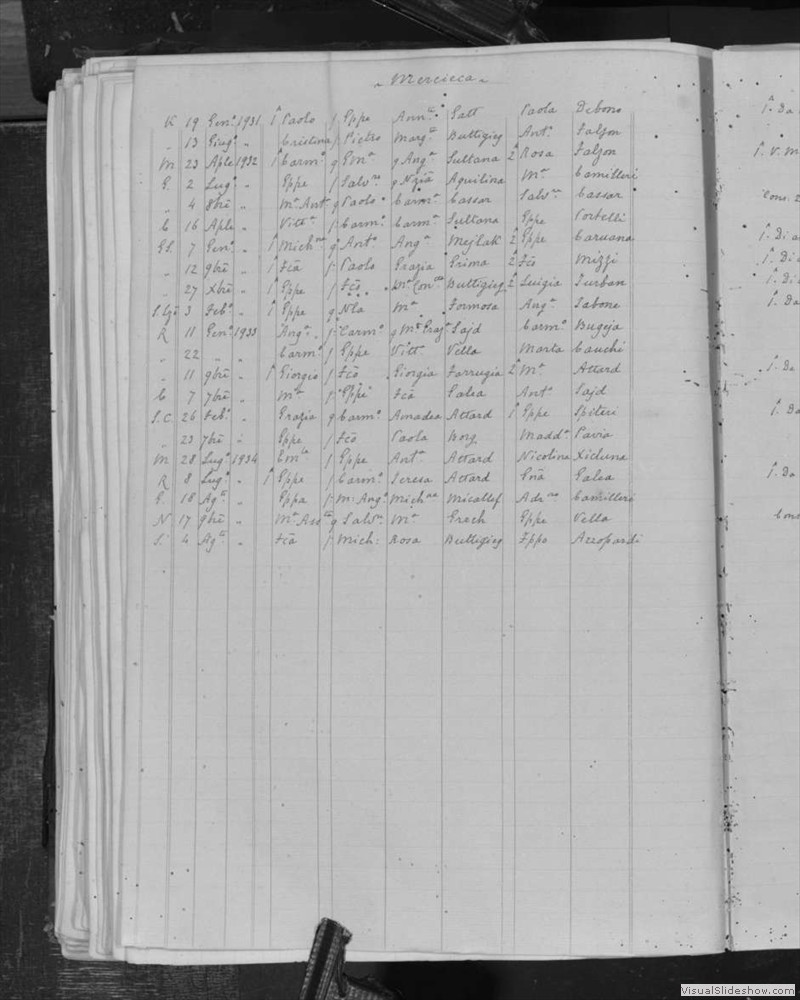 Mercieca
K 19 Genº 1931 1ª Paolo f Gppe Annª Galt Paola Debono
" 13 Giugº " Cristina f Pietro Margª Buttigieg Antª Falzon
M 23 Aple 1932 1ª Carmª g Emª g Angª Sultana 2ª Rosa Falzon
G. 2 Lugº " Gppe f Salvre g Nzia Aquilina Mª Camilleri
" 4 8bre " Mª Antª g Paolo Carmª Cassar Salvre Cassar
C 16 Aple " Vittª f Carmº Carmª Sultana Gppe Portelli
GS. 7 Genº " 1ª Michne g Antº Angª Mejlak 2ª Gppe Caruana
" 12 9bre " 1ª Fca f Paolo Grazia Grima 2ª Fco Mizzi
" 27 Xbre " 1ª Gppe f Fco Mª Conce Buttigieg 2ª Luigia Durban
3 Febº " 1ª Gppe g Nla Mª Formosa Angª Sabone
R 11 Genº 1933 Angª f Carmº g Mª Graz Sajd Carmº Bugeja
" 22 " " Carmº f Gppe Vittª Vella Marta Cauchi
" 11 9bre " 1ª Giorgio f Fco Giorgia Farrugia 2ª Mª Attard
C 7 7bre " Mª f Gppe Fca Galea Antº Sajd
S.C. 26 Febº " Grazia g Carmº Amadea Attard 1ª Gppe Spiteri
" 23 7bre " Gppe f Fco Paola Borg Maddª Pavia
M 28 Lugº 1934 Emla f Gppe Antª Attard Nicolina Xicluna
R 8 Lugº " 1ª Gppe f Carmº Teresa Attard Galea
G. 16 Agto " Gppa f M: Angº Michna Micallef Camilleri
N 17 9bre " Mª Assta g Salvre Mª Grech Gppe Vella
S. 4 Agto " Fca f Mich: Rosa Buttigieg Azzopardi
VisualSlideshow.com